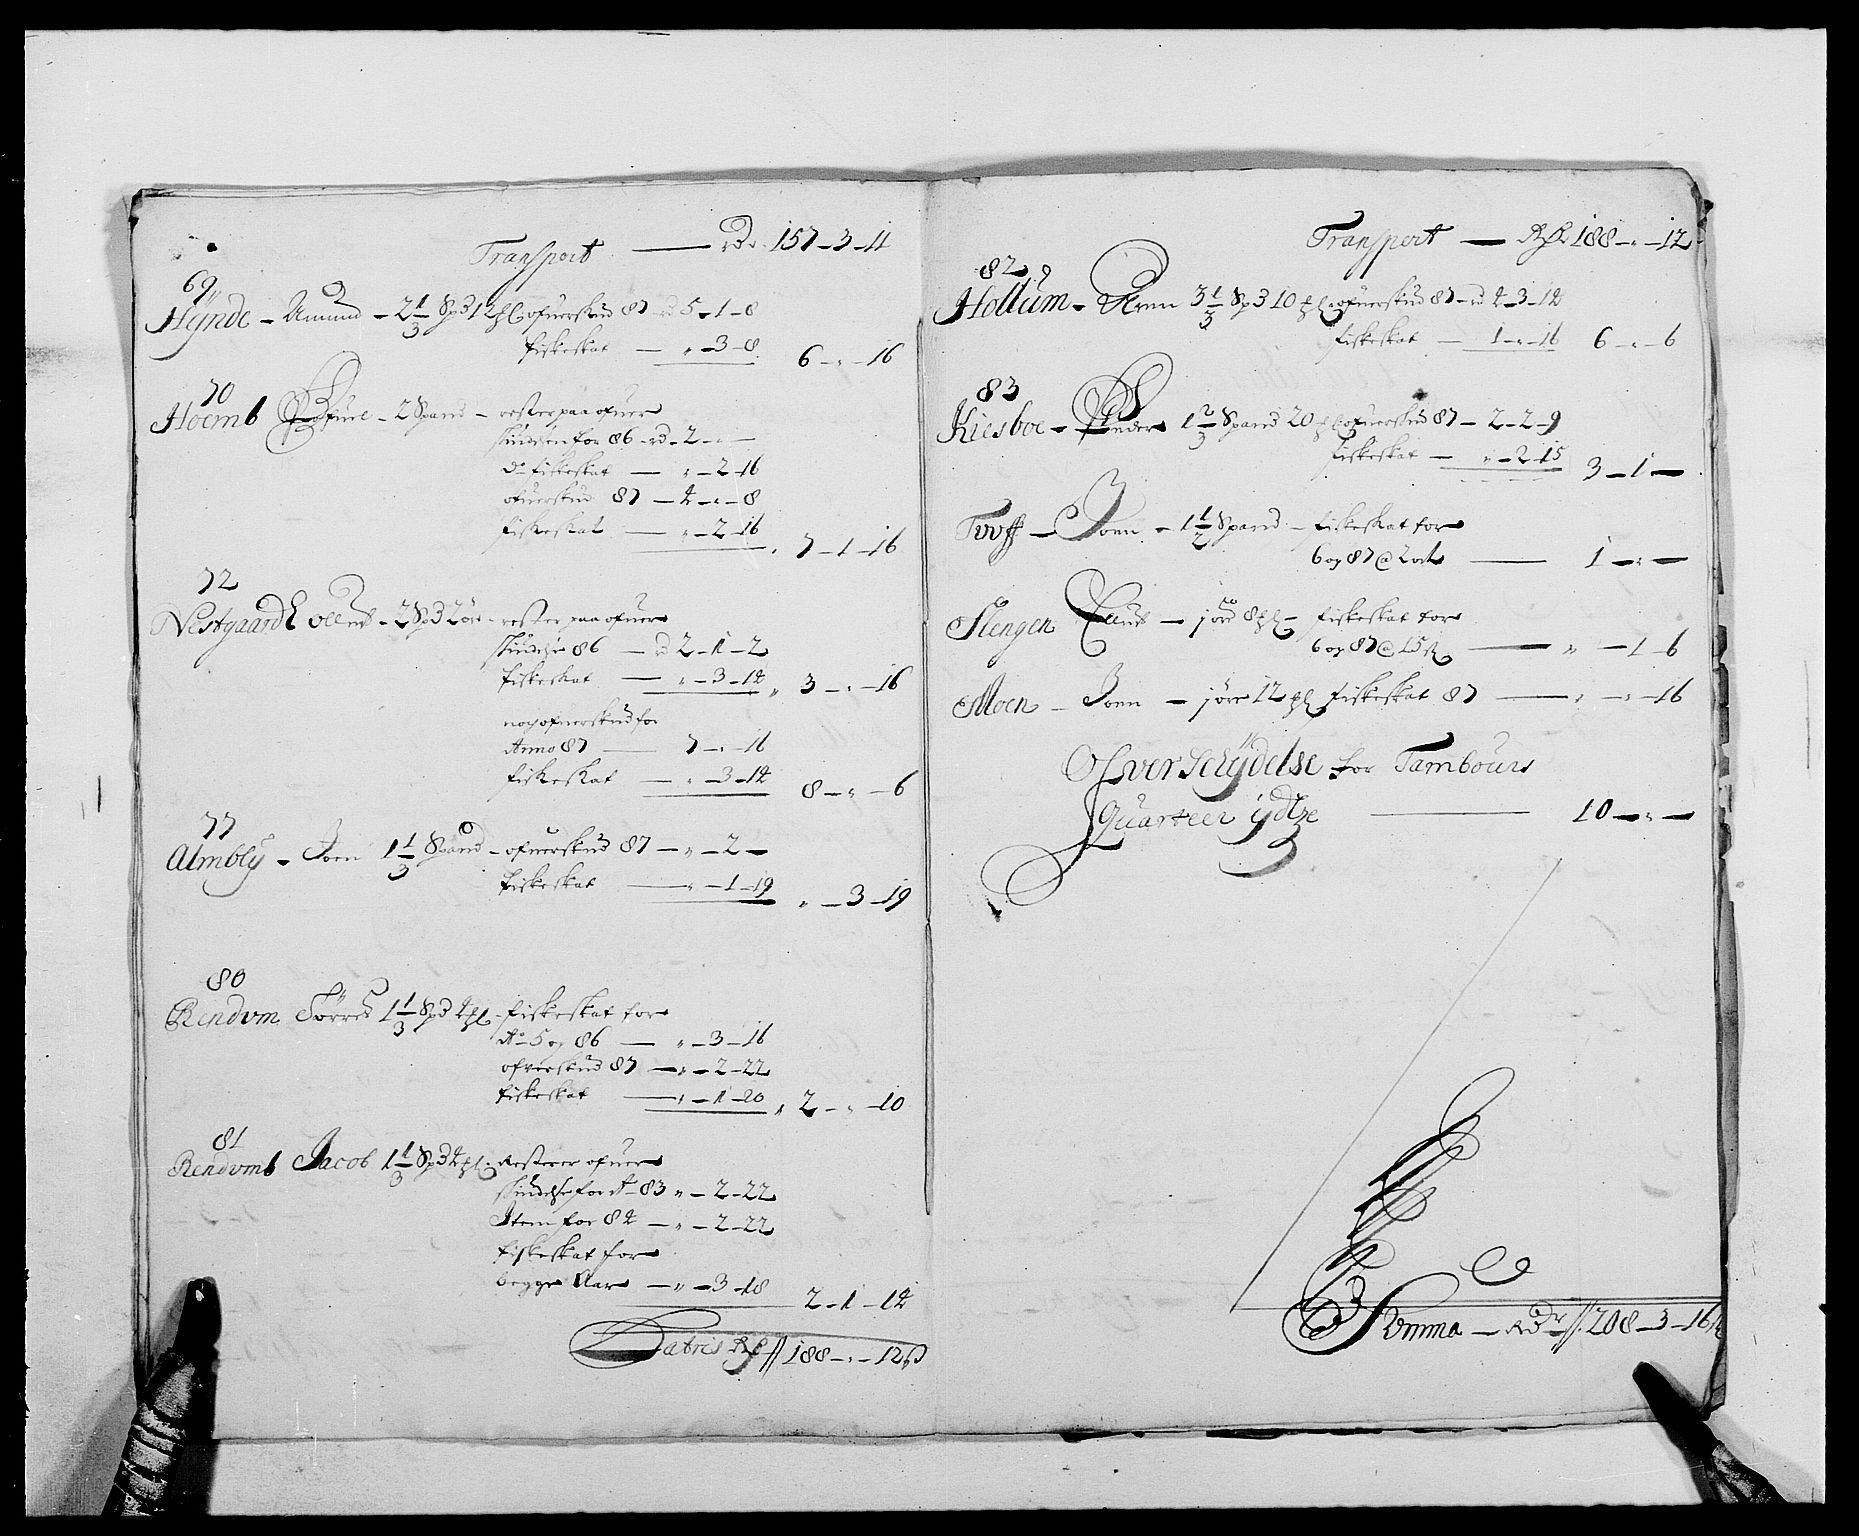 Transport — rdr 157-3-4
69
Hynde - Amund - 2 1/3 Spd 12 pl ofuerskud 87 - rd 5-1-8
fiskeskat — „-3-8 6-„-16
70
Hoemb - 2 Spand - rester paa ofuer
skudsen for 86 - rd - 2-„-
do fiskeskat — „-2-16
ofuerskud 87 - 4-„-8
fiskeskat — „-2-16 7-1-16
72
Vestgaard - 2 Spd 2 öre - rester paa ofuer
skudse 86 — rd 2-1-2
fiskeskat — „-3-14 3-„-16
noch ofuerskud for
Anno 87 — 7-„-16
fiskeskat — „-3-14 8-„-6
77
Almbly - Joen 1 1/3 Spand - ofuerskud 87 - „-2-
fiskeskat — „-1-19 „-3-19
80
Rendum Siurd 1 1/3 Spd 4 pl - fiskeskat for
Ao 5 og 86 — „-3-16
ofverskud 87 — „-2-22
fiskeskat — „-1-20 2-„-10
81
Rendumb Jacob 1 1/3 Spd 4 pl - Resterer ofuer
skudelse for A 83 „-2-22
Item for 84 - „-2-22
fiskeskat for
begge Aar - „-3-18 2-1-14
Latris Rdr 188-„-12 ß
Transport — Rdr 188-„-12
82
Hollum - Arnn 3 1/3 Spd 10 pl - ofuerskud 87 - rd 4-3-14
fiskeskat — 1-„-16 6-„-6
83
Kiesboe - Peder 1 2/3 Spand 20 pl ofuerskud 87 - 2-2-9
fiskeskat — „-2-15 3-1-
Tvff - Joen - 1 1/2 Spand - fiskeskat for
6 og 87 @ 2 ort — 1-„-
Slengen - jord 8 pl - fiskeskat for
6 og 87 @ 15 ß — „-1-6
Moen - Joen - jöre 12 pl fiskeskat 87 — „-„-16
Ofverskydelse for Tambours
Quarteer ydlse — 10-„-
Summa - Rdr 208-3-16 ß